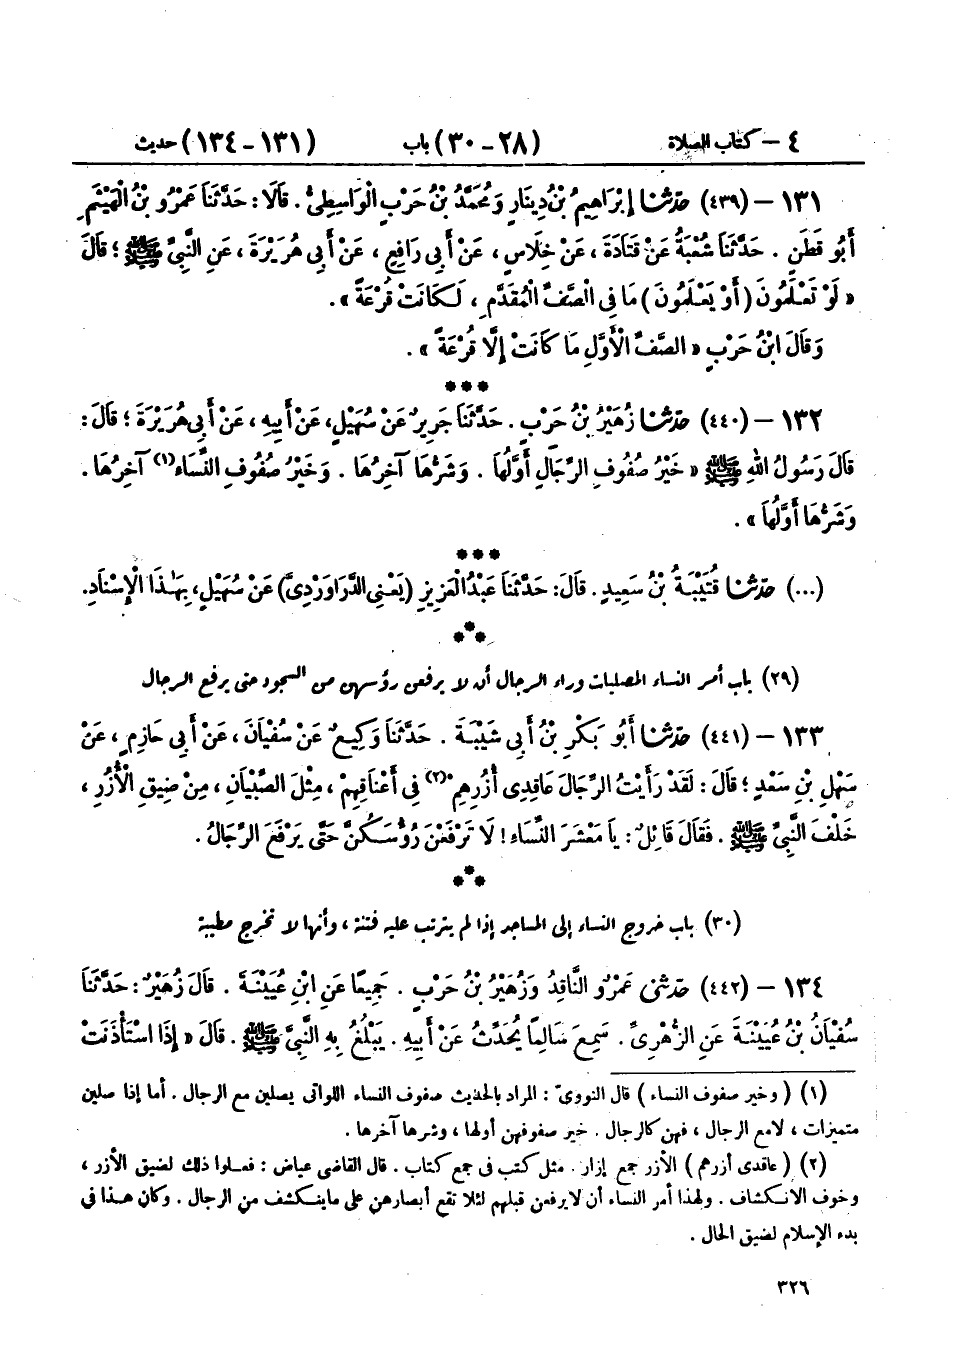 ٤ – كتاب الصلاة (٢٨ - ٣٠) باب (١٣١ - ١٣٤) حديث
١٣١ – (٤٣٩) حَدَّثَنَا إِبْرَاهِيمُ بْنُ دِينَارٍ وَمُحَمَّدُ بْنُ حَرْبٍ الْوَاسِطِيُّ . قَالَا : حَدَّثَنَا عَمْرُو بْنُ الْهَيْثَمِ
أَبُو قَطَنٍ . حَدَّثَنَا شُعْبَةُ عَنْ قَتَادَةَ ، عَنْ خِلَاسٍ ، عَنْ أَبِي رَافِعٍ ، عَنْ أَبِي هُرَيْرَةَ ، عَنِ النَّبِيِّ ﷺ ؛ قَالَ
« لَوْ تَعْلَمُونَ ( أَوْ يَعْلَمُونَ ) مَا فِي الصَّفِّ الْمُقَدَّمِ ، لَكَانَتْ قُرْعَةً » .
وَقَالَ ابْنُ حَرْبٍ « الصَّفِّ الْأَوَّلِ مَا كَانَتْ إِلَّا قُرْعَةً » .
***
١٣٢ – (٤٤٠) حَدَّثَنَا زُهَيْرُ بْنُ حَرْبٍ . حَدَّثَنَا جَرِيرٌ عَنْ سُهَيْلٍ ، عَنْ أَبِيهِ ، عَنْ أَبِي هُرَيْرَةَ ؛ قَالَ :
قَالَ رَسُولُ اللهِ ﷺ « خَيْرُ صُفُوفِ الرِّجَالِ أَوَّلُهَا . وَشَرُّهَا آخِرُهَا . وَخَيْرُ صُفُوفِ النِّسَاء(١) آخِرُهَا .
وَشَرُّهَا أَوَّلُهَا » .
***
(...) حَدَّثَنَا قُتَيْبَةُ بْنُ سَعِيدٍ . قَالَ : حَدَّثَنَا عَبْدُ الْعَزِيزِ (يَعْنِي الدَّرَاوَرْدِيَّ) عَنْ سُهَيْلٍ ، بِهَٰذَا الْإِسْنَادِ .
***
(٢٩) باب أمر النساء المصليات وراء الرجال أن لا يرفعن رؤسهن من السجود حتى يرفع الرجال
١٣٣ – (٤٤١) حَدَّثَنَا أَبُو بَكْرِ بْنُ أَبِي شَيْبَةَ . حَدَّثَنَا وَكِيعٌ عَنْ سُفْيَانَ ، عَنْ أَبِي حَازِمٍ ، عَنْ
سَهْلِ بْنِ سَعْدٍ ؛ قَالَ : لَقَدْ رَأَيْتُ الرِّجَالَ عَاقِدِي أُزُرِهِمْ(٢) فِي أَعْنَاقِهِمْ ، مِثْلَ الصِّبْيَانِ ، مِنْ ضِيقِ الْأُزُرِ ،
خَلْفَ النَّبِيِّ ﷺ . فَقَالَ قَائِلٌ : يَا مَعْشَرَ النِّسَاء ! لَا تَرْفَعْنَ رُؤُسَكُنَّ حَتَّى يَرْفَعَ الرِّجَالُ .
***
(٣٠) باب خروج النساء إلى المساجد إذا لم يترتب عليه فتنة ، وأنها لا تخرج مطيبة
١٣٤ – (٤٤٢) حَدَّثَنِي عَمْرٌو النَّاقِدُ وَزُهَيْرُ بْنُ حَرْبٍ . جَمِيعًا عَنِ ابْنِ عُيَيْنَةَ . قَالَ زُهَيْرٌ : حَدَّثَنَا
سُفْيَانُ بْنُ عُيَيْنَةَ عَنِ الزُّهْرِيِّ . سَمِعَ سَالِمًا يُحَدِّثُ عَنْ أَبِيهِ . يَبْلُغُ بِهِ النَّبِيَّ ﷺ . قَالَ « إِذَا اسْتَأْذَنَتْ
(١) ( وخير صفوف النساء ) قال النوويّ : المراد بالحديث صفوف النساء اللواتي يصلين مع الرجال . أما إذا صلين
متميزات ، لامع الرجال ، فهن كالرجال . خير صفوفهن أولها ، وشرها آخرها .
(٢) ( عاقدى أزرهم ) الأزر جمع إزار . مثل كتب فى جمع كتاب . قال القاضى عياض : فعلوا ذلك لضيق الأزر ،
وخوف الانكشاف . ولهذا أمر النساء أن لا يرفعن قبلهم لئلا تقع أبصارهن على ماينكشف من الرجال . وكان هذا فى
بدء الإسلام لضيق الحال .
٣٢٦